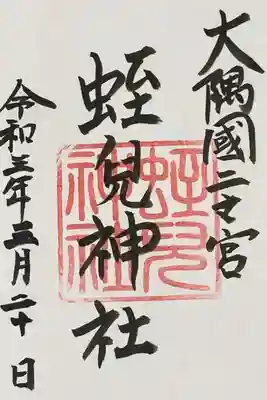 大隅國二之宮
蛭児神社
蛭児神社
令和三年三月二十日